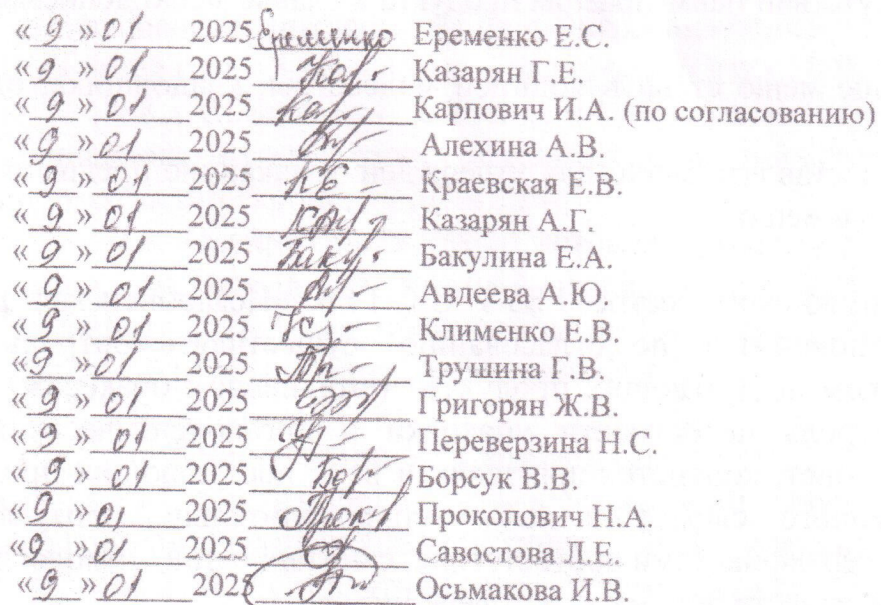 « 9 » 01 2025 Еременко Еременко Е.С.
« 9 » 01 2025 Казарян Г.Е.
« 9 » 01 2025 Карпович И.А. (по согласованию)
« 9 » 01 2025 Алехина А.В.
« 9 » 01 2025 Краевская Е.В.
« 9 » 01 2025 Казарян А.Г.
« 9 » 01 2025 Баку Бакулина Е.А.
« 9 » 01 2025 Авдеева А.Ю.
« 9 » 01 2025 Клименко Е.В.
« 9 » 01 2025 Трушина Г.В.
« 9 » 01 2025 Григорян Ж.В.
« 9 » 01 2025 Переверзина Н.С.
« 9 » 01 2025 Бор Борсук В.В.
« 9 » 01 2025 Прок Прокопович Н.А.
« 9 » 01 2025 Савостова Л.Е.
« 9 » 01 2025 Осьмакова И.В.